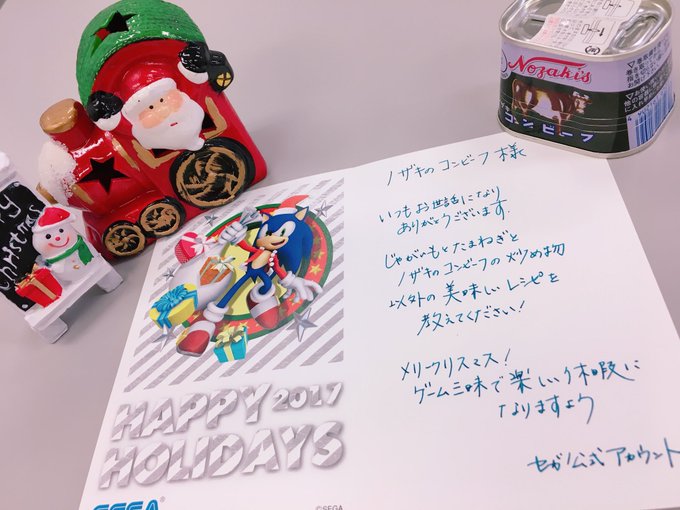 Nozaki's
コンビーフ
y
Christmas
ノザキのコンビーフ様
いつもお世話になり
ありがとうございます。
じゃがいもとたまねぎと
ノザキのコンビーフの炒め物
以外の美味しいレシピを
教えてください!
メリークリスマス!
ゲーム三昧で楽しい休暇に
なりますよう
セガ公式アカウント
HAPPY 2017
HOLIDAYS
SEGA
©SEGA